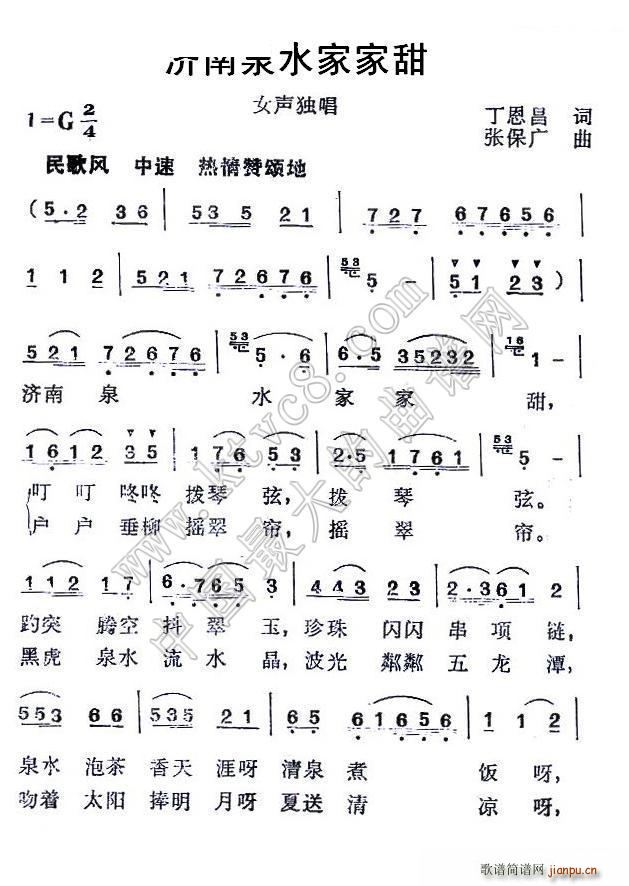 济南泉水家家甜
女声独唱
1=G 2/4
丁恩昌 词
张保广 曲
民歌风 中速 热情赞颂地
(5·2 36 | 535 21 | 727 67656 |
112 | 521 72676 | 53 5 - | 51 23) |
521 72676 | 53 5·6 | 6·5 35232 | 16 1 - |
济南 泉 水 家 家 甜,
1612 35 | 176 53 | 2·5 1761 | 53 5 - |
叮 叮 咚咚 拨琴 弦, 拨 琴 弦。
户 户 垂柳 摇翠 帘, 摇 翠 帘。
112 17 | 6·765 3 | 443 23 | 2·361 2 |
趵突 腾空 抖 翠 玉, 珍珠 闪闪 串 项 链,
黑虎 泉水 流 水 晶, 波光 粼粼 五 龙 潭,
553 66 | 535 21 | 61 6 5676 | 112 |
泉水 泡茶 香天 涯呀 清泉 煮 饭 呀,
吻着 太阳 捧明 月呀 夏送 清 凉 呀,
www.ktvc8.com
中国最大的曲谱网
歌谱简谱网 jianpu.cn